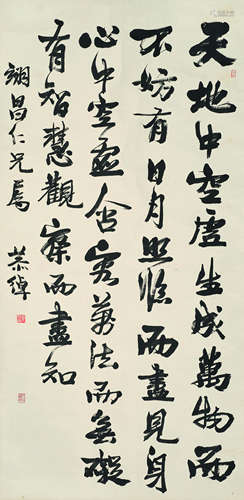 天地中空虛生成萬物而
不妨有日月照臨而盡見身
心中空虛含容萬法而無礙
有智慧觀察而盡知
翊昌仁兄屬